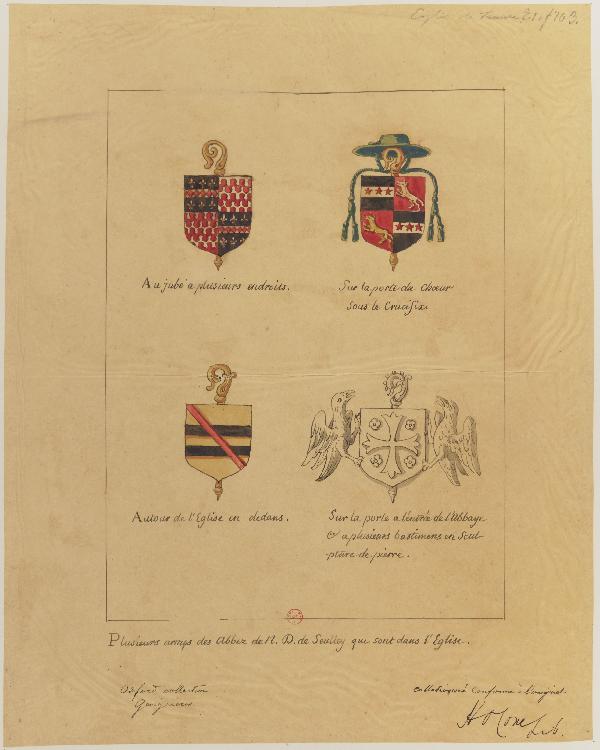 Au jubé a plusieurs endroits.
Sur la porte du Chœur
sous le Crucifix
Autour de l'Eglise en dedans.
Sur la porte a l'entrée de l'Abbaye
& a plusieurs bastimens en Scul-
pture de pierre.
Plusieurs armes des Abbez de N. D. de Seulley qui sont dans l'Eglise.
Oxford collection
Gaignieres
Collationné Conforme à l'original.
H O Coxe